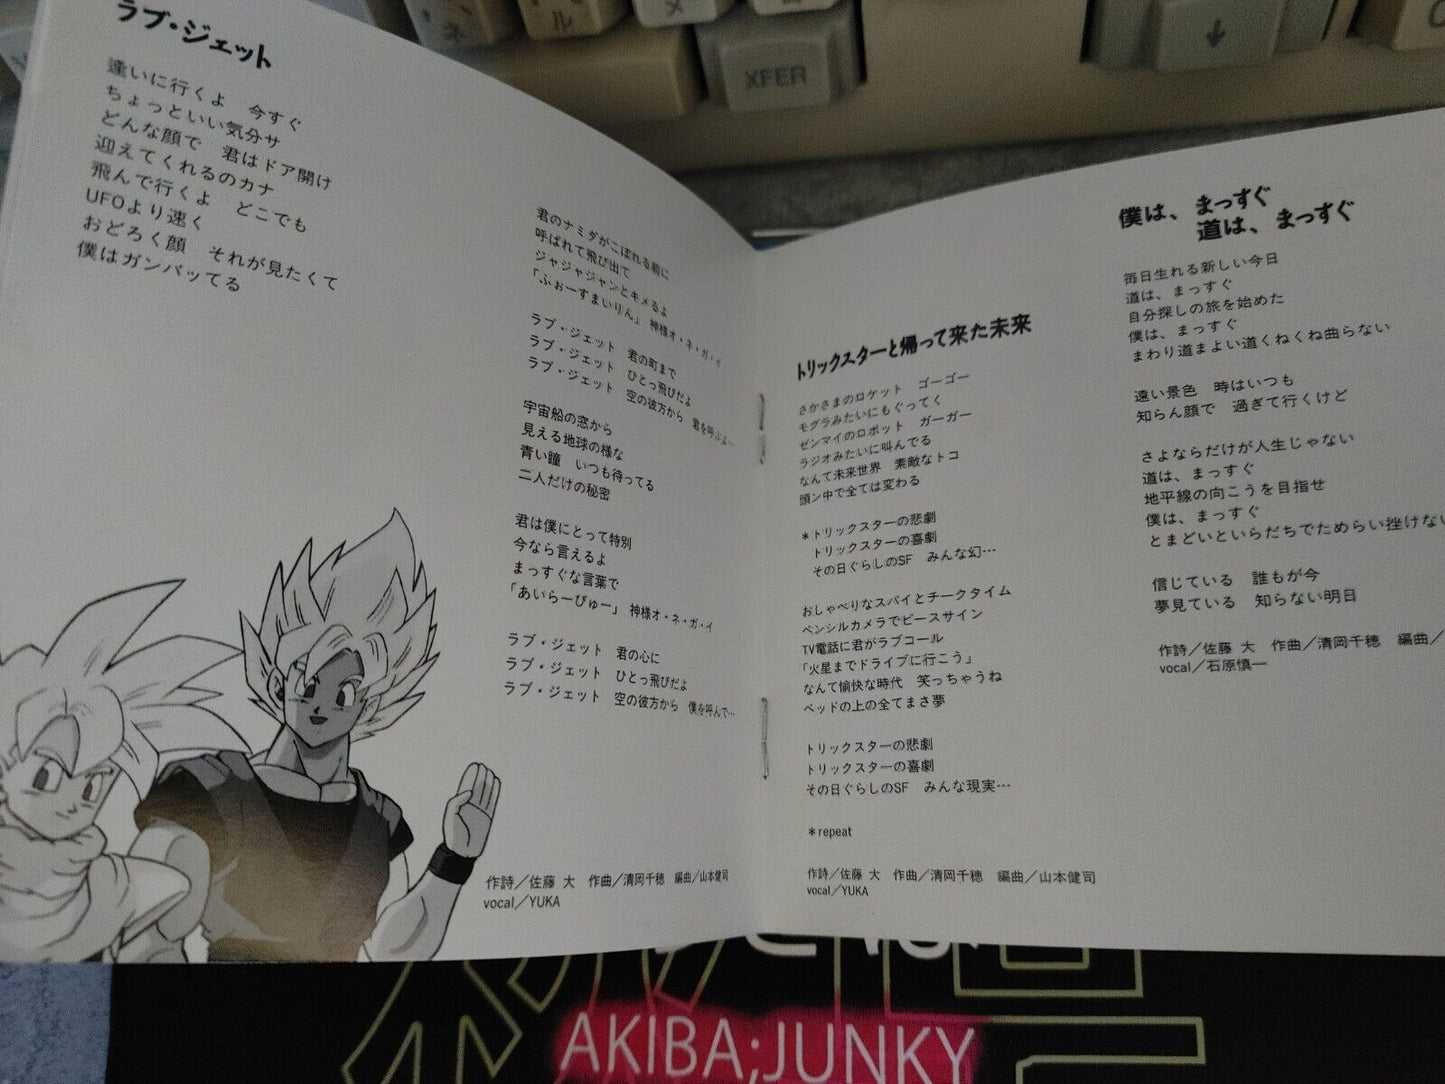 ラブ・ジェット
逢いに行くよ　今すぐ
ちょっといい気分サ
どんな顔で　君はドア開け
迎えてくれるのカナ
飛んで行くよ　どこでも
UFOより速く
おどろく顔　それが見たくて
僕はガンバッてる
君のナミダがこぼれる前に
呼ばれて飛び出て
ジャジャジャンとキメるよ
「ふぉーすまいりん」 神様オ・ネ・ガ・イ
ラブ・ジェット　君の町まで
ラブ・ジェット　ひとっ飛びだよ
ラブ・ジェット　空の彼方から　君を呼ぶよ…
宇宙船の窓から
見える地球の様な
青い瞳　いつも待ってる
二人だけの秘密
君は僕にとって特別
今なら言えるよ
まっすぐな言葉で
「あいらーびゅー」 神様オ・ネ・ガ・イ
ラブ・ジェット　君の心に
ラブ・ジェット　ひとっ飛びだよ
ラブ・ジェット　空の彼方から　僕を呼んで…
作詩／佐藤 大　作曲／清岡千穂　編曲／山本健司
vocal／YUKA
トリックスターと帰って来た未来
さかさまのロケット　ゴーゴー
モグラみたいにもぐってく
ゼンマイのロボット　ガーガー
ラジオみたいに叫んでる
なんて未来世界　素敵なトコ
頭ン中で全ては変わる
＊トリックスターの悲劇
トリックスターの喜劇
その日ぐらしのSF　みんな幻…
おしゃべりなスパイとチークタイム
ペンシルカメラでピースサイン
TV電話に君がラブコール
「火星までドライブに行こう」
なんて愉快な時代　笑っちゃうね
ベッドの上の全てまさ夢
トリックスターの悲劇
トリックスターの喜劇
その日ぐらしのSF　みんな現実…
＊repeat
作詩／佐藤 大　作曲／清岡千穂　編曲／山本健司
vocal／YUKA
僕は、まっすぐ
道は、まっすぐ
毎日生れる新しい今日
道は、まっすぐ
自分探しの旅を始めた
僕は、まっすぐ
まわり道まよい道くねくね曲らない
遠い景色　時はいつも
知らん顔で　過ぎて行くけど
さよならだけが人生じゃない
道は、まっすぐ
地平線の向こうを目指せ
僕は、まっすぐ
とまどいといらだちでためらい挫けない
信じている　誰もが今
夢見ている　知らない明日
作詩／佐藤 大　作曲／清岡千穂　編曲／
vocal／石原慎一
XFER
↓
ネ
ル
メ
AKIBA;JUNKY